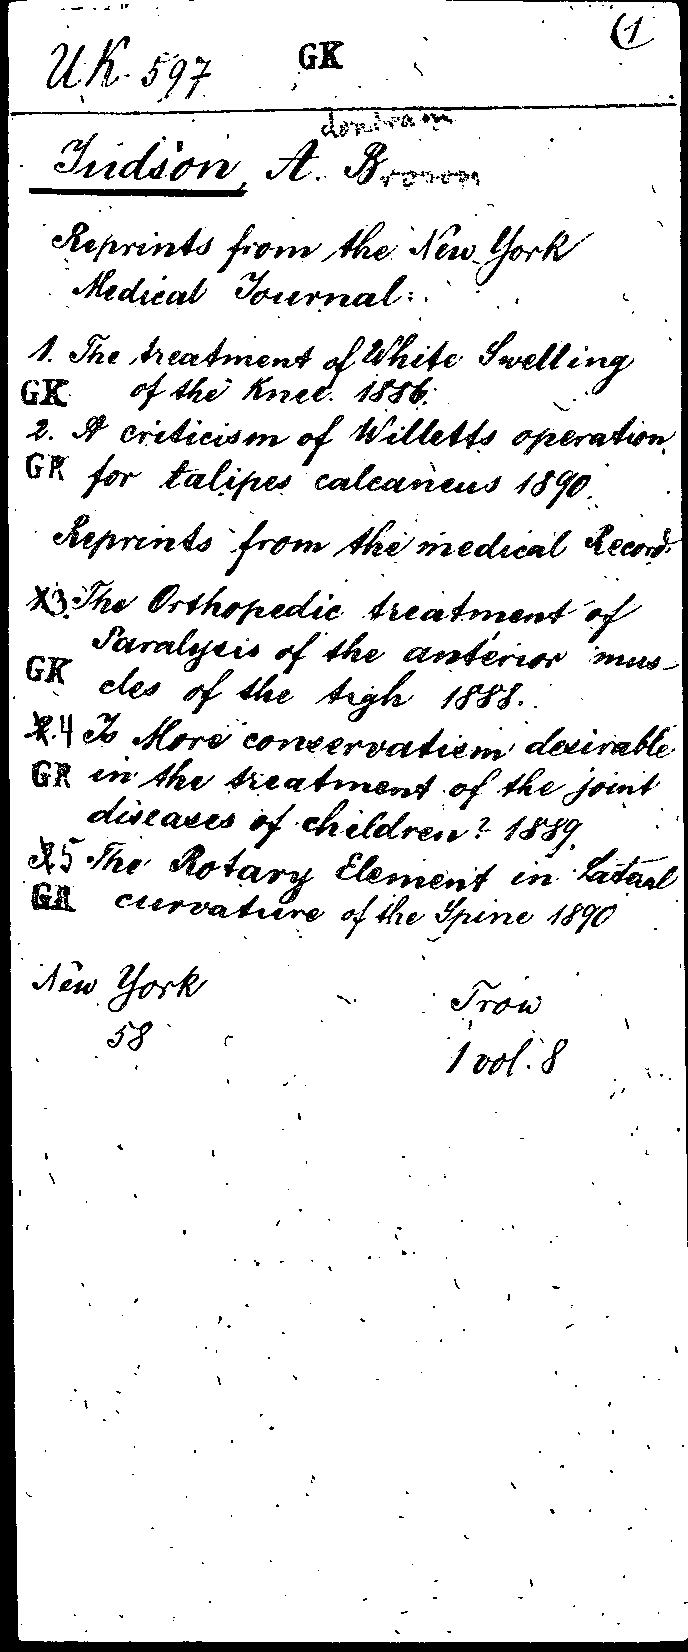 (1
UK. 597 GK
Judson, A. Brown
Reprints from the New York
Medical Journal:
1. The treatment of White Swelling
GK of the Knee. 1886.
2. A criticism of Willetts operation
GK for talipes calcaneus 1890.
Reprints from the medical Record.
3. The Orthopedic treatment of
Paralysis of the anterior mus-
GK cles of the tigh 1888.
4 Is More conservatism desirable
GK in the treatment of the joint
diseases of children? 1889.
5 The Rotary Element in Lataal
GK curvature of the Spine 1890
New York Trow
58 1 vol. 8